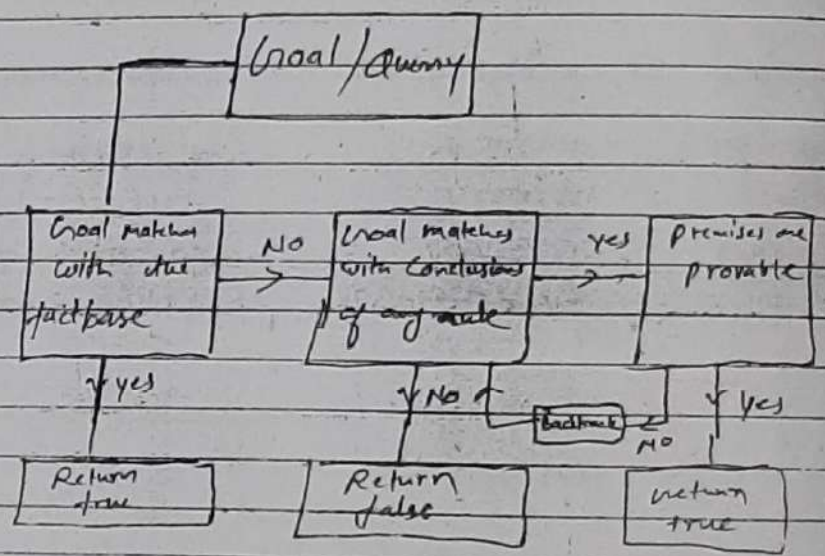 Goal/Query
Goal matches
with the
factbase
NO
Goal matches
with Conclusions
of any rule
yes
Premises are
provable
yes
NO
Backtrack
NO
yes
Return
true
Return
false
return
true